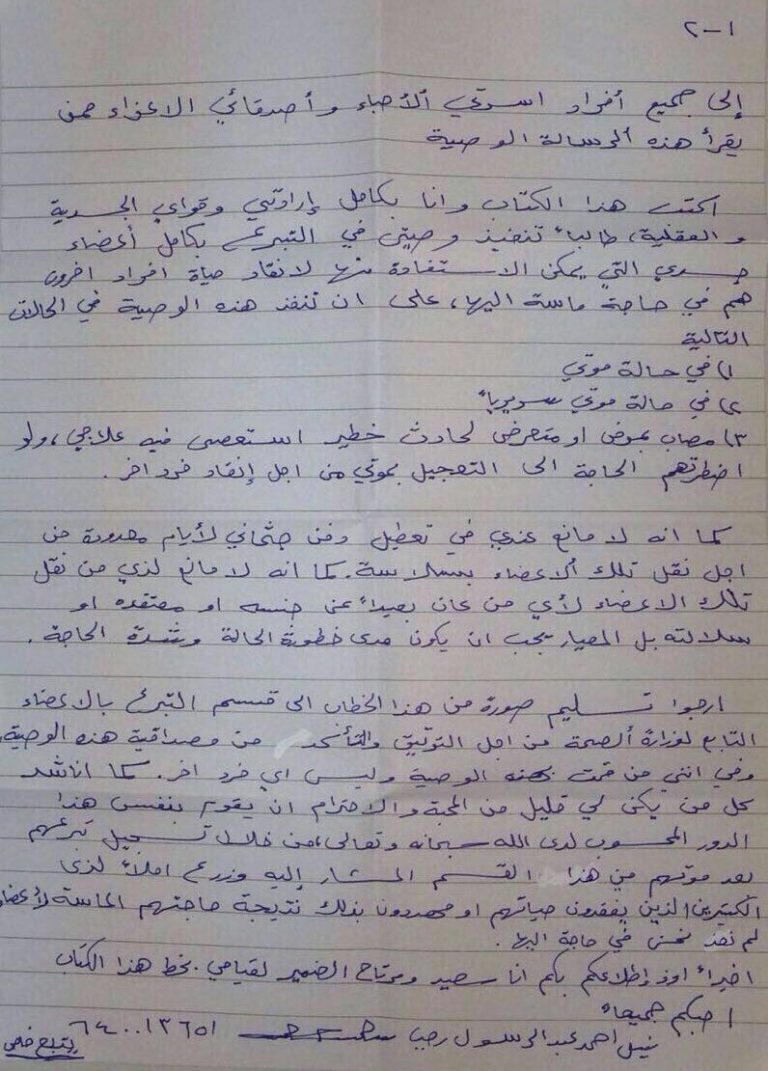 ١-٢
إلى جميع أفراد اسرتي الأحباء وأصدقائي الاعزاء ممن
يقرأ هذه الرسالة الوصية
اكتب هذا الكتاب وانا بكامل إرادتي وقواي الجسدية
والعقلية، طالباً تنفيذ وصيتي في التبرع بكامل أعضاء
جسدي التي يمكن الاستفادة منها لانقاد حياة افراد اخرون
هم في حاجة ماسة اليها، على ان تنفذ هذه الوصية في الحالات
التالية
١) في حالة موتي
٢) في حالة موتي سريرياً
٣) مصاب بمرض او متعرض لحادث خطير استعصى فيه علاجي، ولو
اضطرتهم الحاجة الى التعجيل بموتي من اجل إنقاد فرد اخر.
كما انه لا مانع عندي في تعطيل دفن جثماني لأيام معدودة من
اجل نقل تلك الاعضاء بسلاسة. كما انه لا مانع لذي من نقل
تلك الاعضاء لأي من كان بعيداً عن جنسه او معتقده او
سلالته بل المعيار يجب ان يكون مدى خطورة الحالة وشدة الحاجة.
ارجوا تسليم صورة من هذا الخطاب الى قسم التبرع بالاعضاء
التابع لوزارة الصحة من اجل التوثيق والتأكد من مصداقية هذه الوصية
وفي انني من قمت بهذه الوصية وليس اي فرد اخر. كما اناشد
كل من يكن لي قليل من المحبة والاحترام ان يقوم بنفس هذا
الدور المحسوب لدى الله سبحانه وتعالى، من خلال تسجيل تبرعهم
بعد موتهم من هذا القسم المشار إليه وزرع املاً لذى
الكثيرين الذين يفقدون حياتهم او مهددون بذلك نتيجة حاجتهم الماسة لأعضاء
لم نعد نحن في حاجة اليها.
اخيراً اود إطلاعكم بكم انا سعيد ومرتاح الضمير لقيامي بخط هذا الكتاب
احبكم جميعاً
نبيل احمد عبدالرسول رجب ٦٤٠٠١٣٦٥١
يتبع خلفي